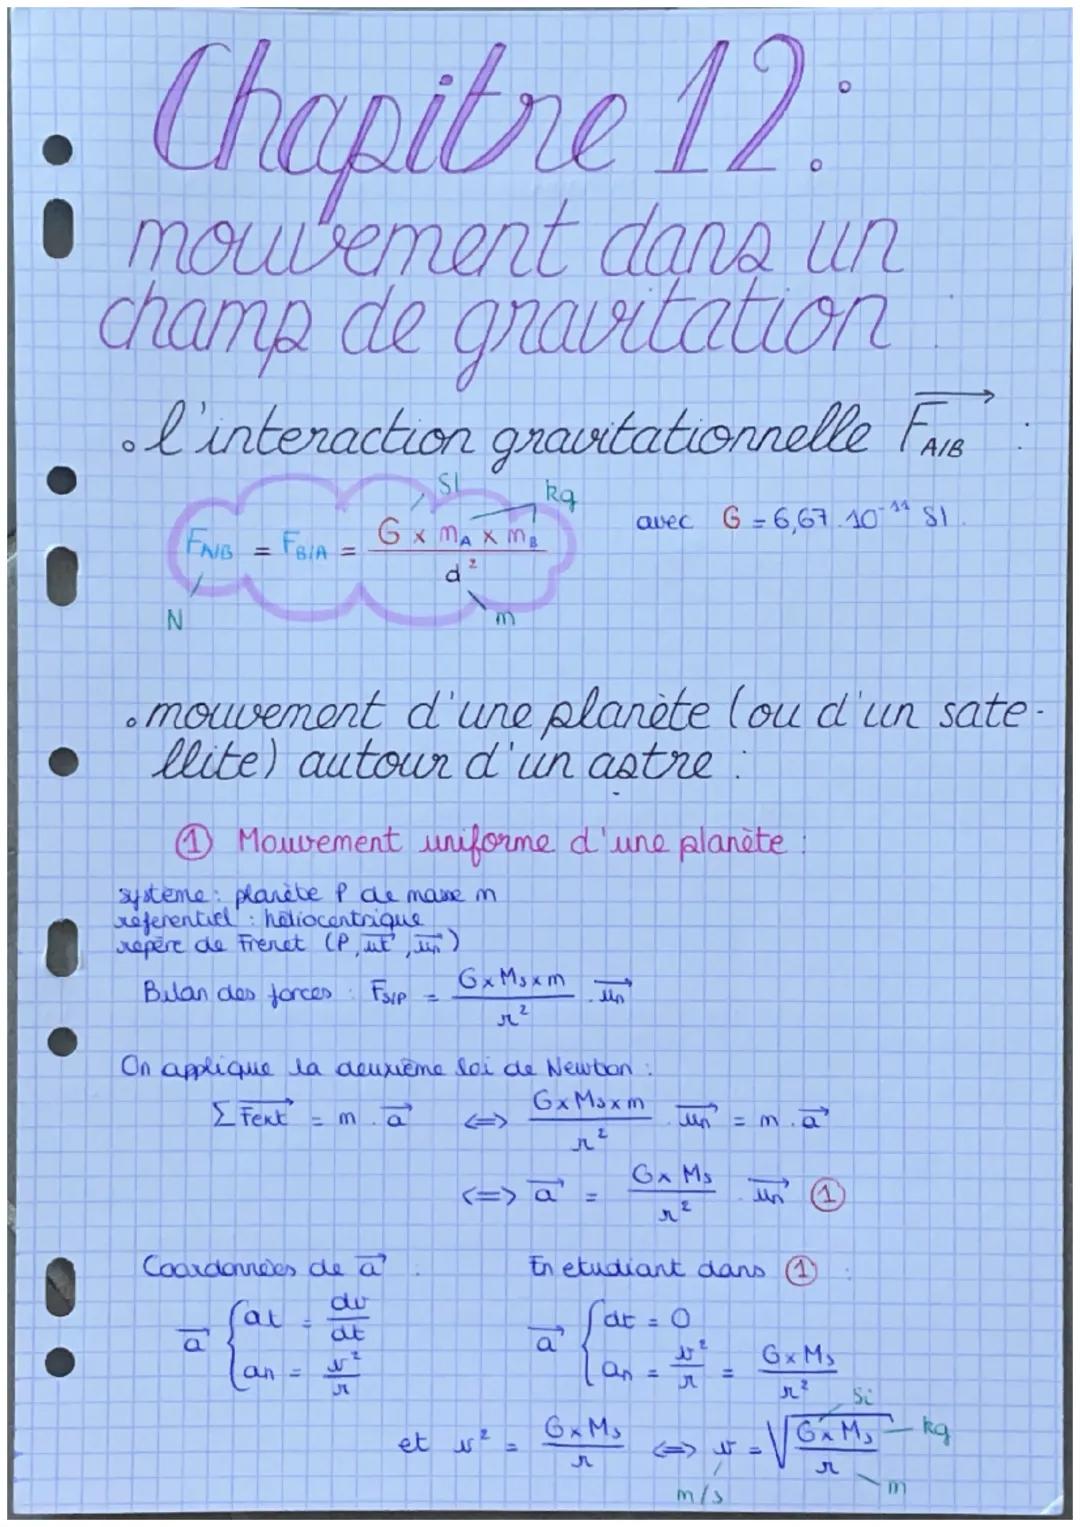 Chapitre 12:
mouvement dans un
champ de gravitation
• l'interaction gravitationnelle F A/B :
SI kg
F A/B = F B/A = G × mA × mB / d² avec G = 6,67.10⁻¹¹ SI.
N m
• mouvement d'une planète (ou d'un sate-
llite) autour d'un astre :
① Mouvement uniforme d'une planète :
système : planète P de masse m
référentiel : héliocentrique
repère de Frenet (P, ut, un)
Bilan des forces : F S/P = G×Ms×m / r² . un
On applique la deuxième loi de Newton :
Σ Fext = m . a <=> G×Ms×m / r² . un = m . a
<=> a = G×Ms / r² . un ①
Coordonnées de a : En etudiant dans ① :
a { at = dv/dt a { at = 0
an = v²/r an = v²/r = G×Ms / r²
et v² = G×Ms / r <=> v = √(G×Ms / r) Si kg
m/s m